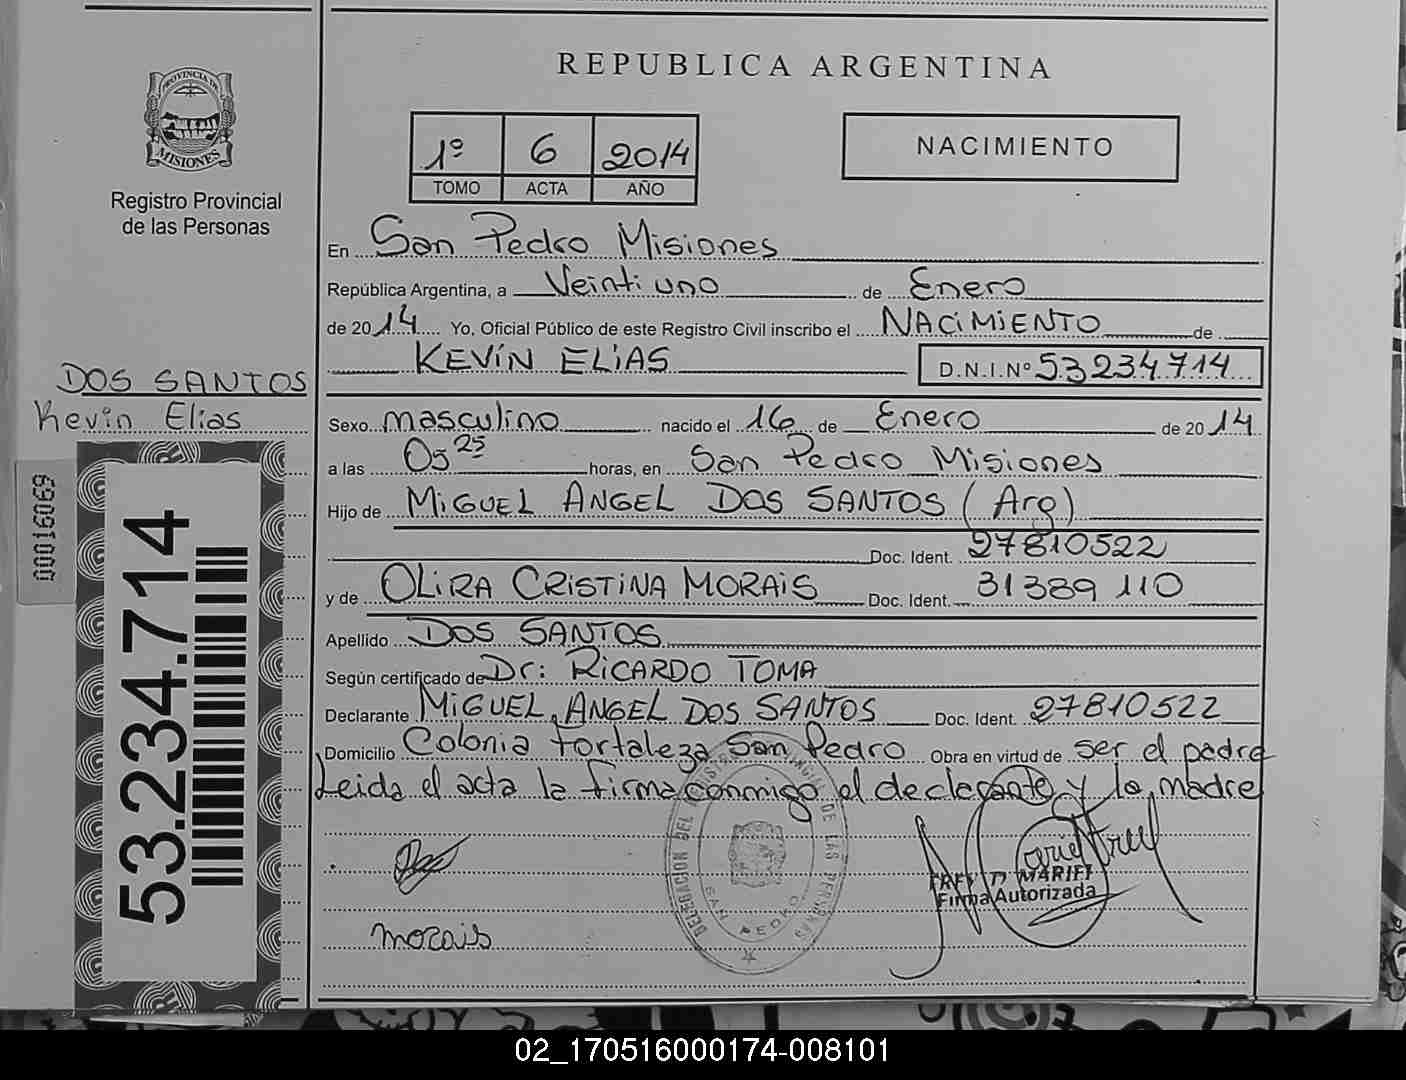 REPUBLICA ARGENTINA
PROVINCIA DE
MISIONES
Registro Provincial
de las Personas
1º 6 2014
TOMO ACTA AÑO
NACIMIENTO
En San Pedro Misiones
República Argentina, a Veintiuno de Enero
de 2014 Yo, Oficial Público de este Registro Civil inscribo el NACIMIENTO de
KEVIN ELIAS D.N.I.Nº 53234714
DOS SANTOS
Kevin Elias
Sexo masculino nacido el 16 de Enero de 2014
a las 05 25 horas, en San Pedro Misiones
Hijo de MIGUEL ANGEL DOS SANTOS (Arg)
Doc. Ident. 27810522
y de OLIRA CRISTINA MORAIS Doc. Ident. 31389110
Apellido DOS SANTOS
Según certificado de Dr: RICARDO TOMA
Declarante MIGUEL ANGEL DOS SANTOS Doc. Ident. 27810522
Domicilio Colonia Fortaleza San Pedro Obra en virtud de ser el padre
Leida el acta la firma conmigo el declarante y la madre
morais
DELEGACION DEL REGISTRO PROVINCIAL DE LAS PERSONAS
SAN PEDRO
Firma Autorizada
00016069
53.234.714
02_170516000174-008101